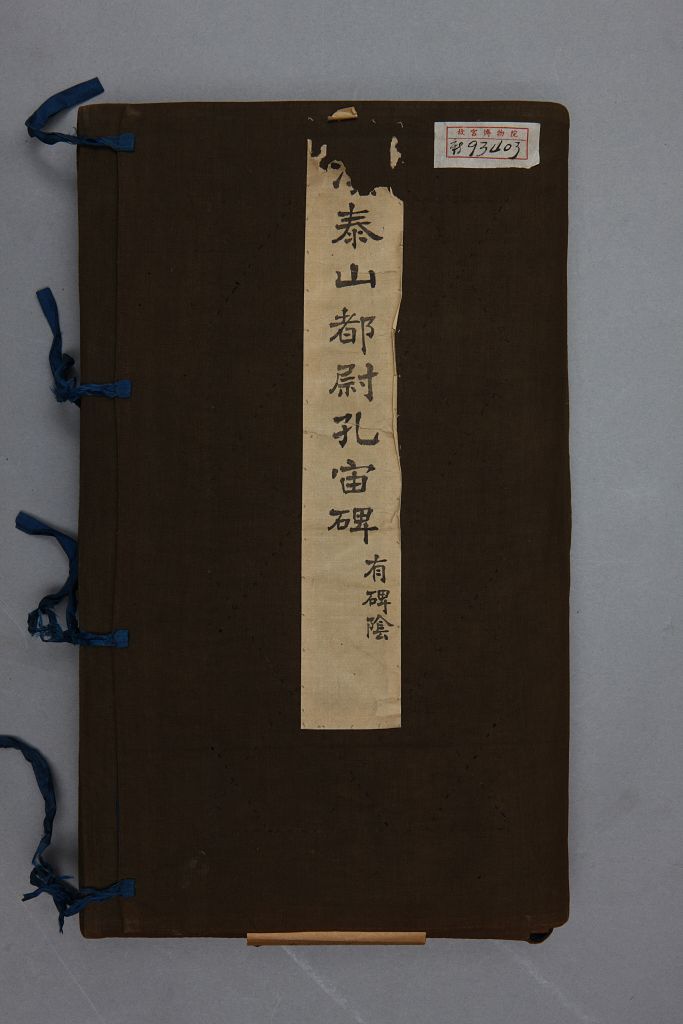 故宮博物院
新93403
泰山都尉孔宙碑
有碑陰